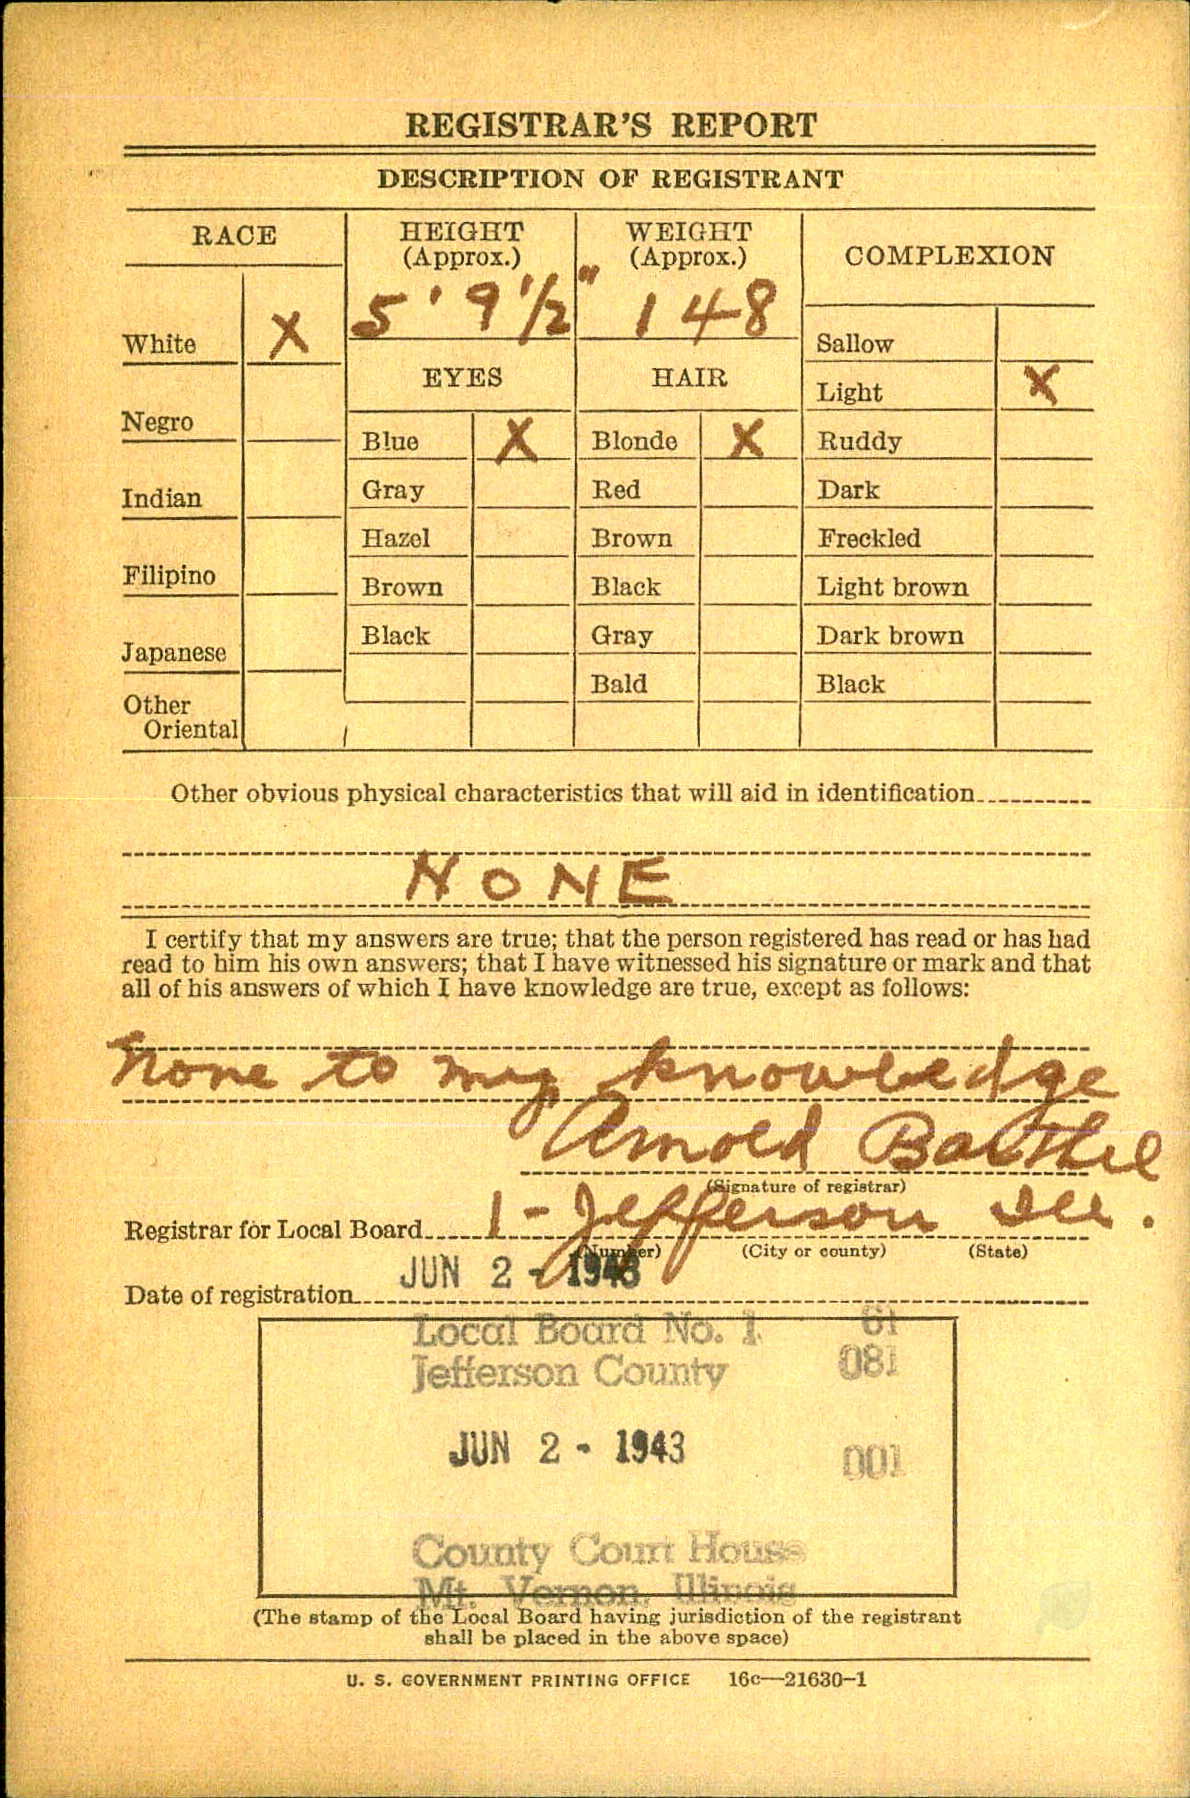 REGISTRAR'S REPORT
DESCRIPTION OF REGISTRANT
RACE
White X
Negro
Indian
Filipino
Japanese
Other
Oriental
HEIGHT
(Approx.)
5' 9 1/2"
EYES
Blue X
Gray
Hazel
Brown
Black
WEIGHT
(Approx.)
148
HAIR
Blonde X
Red
Brown
Black
Gray
Bald
COMPLEXION
Sallow
Light X
Ruddy
Dark
Freckled
Light brown
Dark brown
Black
Other obvious physical characteristics that will aid in identification
NONE
I certify that my answers are true; that the person registered has read or has had
read to him his own answers; that I have witnessed his signature or mark and that
all of his answers of which I have knowledge are true, except as follows:
None to my knowledge
Arnold Barthel
(Signature of registrar)
Registrar for Local Board 1 - Jefferson Ill.
(Number) (City or county) (State)
Date of registration JUN 2 - 1943
Local Board No. 1 61
Jefferson County 081
JUN 2 - 1943 001
County Court House
Mt. Vernon, Illinois
(The stamp of the Local Board having jurisdiction of the registrant
shall be placed in the above space)
U. S. GOVERNMENT PRINTING OFFICE 16c—21630-1